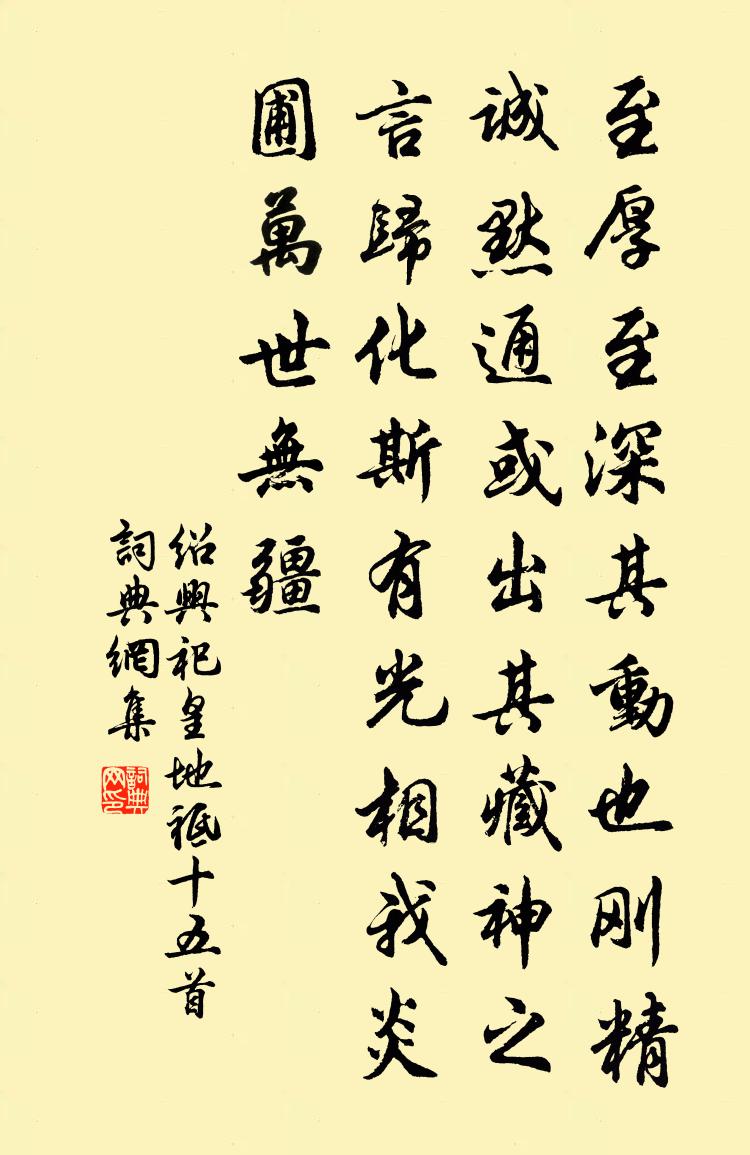 至厚至深其動也刚精
诚黙通或出其藏神之
言歸化斯有光相我炎
圃萬世無疆
绍興祀皇地祗十五首
詞典網集
詞典
网印